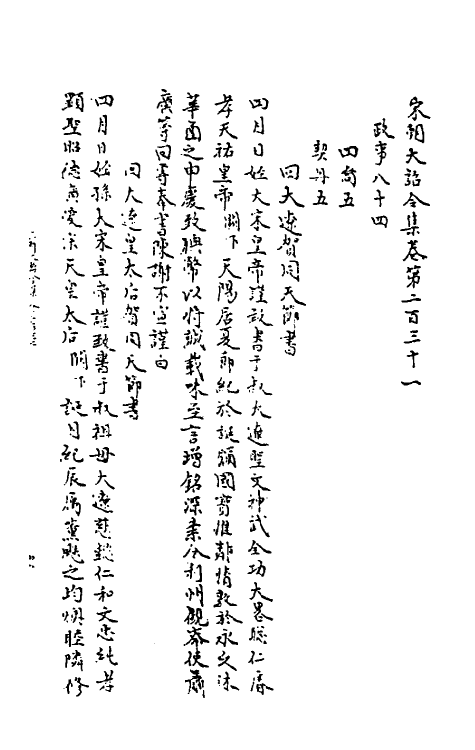 宋朝大詔令集卷第二百三十一
政事八十四
四裔五
契丹五
回大遼賀同天節書
四月日姪大宋皇帝謹致書于叔大遼聖文神武全功大畧聡仁睿
孝天祐皇帝闕下天陽居夏節紀於誕彌國寶惟鄰情敦於永久沐
華函之申慶致聘幣以將誠載味至言增銘深素今利州觀察使蕭
廣等回專奉書陳謝不宣謹白
回大遼皇太后賀同天節書
四月日姪孫大宋皇帝謹致書于叔祖母大遼慈懿仁和文惠純孝
顯聖昭德廣愛宗天皇太后闕下誕月紀辰屬薰颷之均煥睦隣修